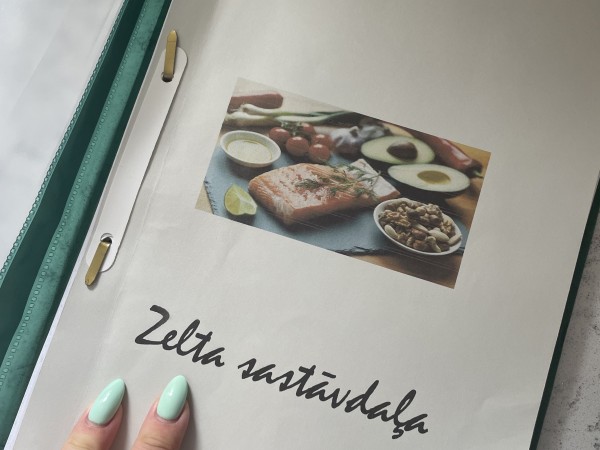 Zelta sastāvdaļa